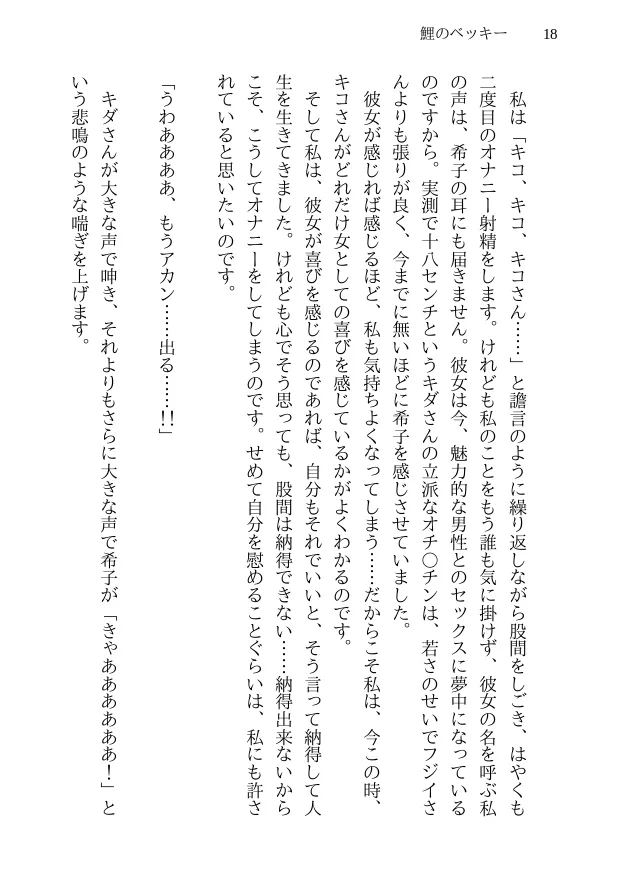 鯉のベッキー 18
私は「キコ、キコ、キコさん……」と譫言のように繰り返しながら股間をしごき、はやくも
二度目のオナニー射精をします。けれども私のことをもう誰も気に掛けず、彼女の名を呼ぶ私
の声は、希子の耳にも届きません。彼女は今、魅力的な男性とのセックスに夢中になっている
のですから。実測で十八センチというキダさんの立派なオチ〇チンは、若さのせいでフジイさ
んよりも張りが良く、今までに無いほどに希子を感じさせていました。
彼女が感じれば感じるほど、私も気持ちよくなってしまう……だからこそ私は、今この時、
キコさんがどれだけ女としての喜びを感じているかがよくわかるのです。
そして私は、彼女が喜びを感じるのであれば、自分もそれでいいと、そう言って納得して人
生を生きてきました。けれども心でそう思っても、股間は納得できない……納得出来ないから
こそ、こうしてオナニーをしてしまうのです。せめて自分を慰めることぐらいは、私にも許さ
れていると思いたいのです。
「うわああああ、もうアカン……出る……!!」
キダさんが大きな声で呻き、それよりもさらに大きな声で希子が「きゃああああああ！」と
いう悲鳴のような喘ぎを上げます。